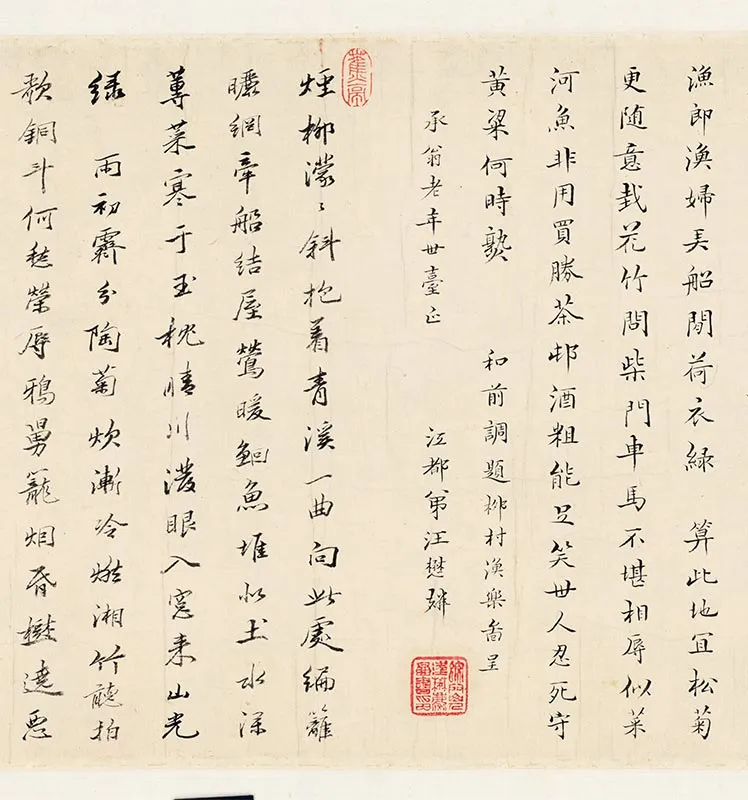 漁郎漁婦弄船閒荷衣綠 算此地宜松菊
更随意栽花竹問柴門車馬不堪相辱似菜
河魚非用買勝茶邨酒粗能足笑世人忍死守
黃粱何時熟 和前調題柳村漁樂圖呈
承翁老年世臺正 江都弟汪懋麟
煙柳濛〻斜抱着青溪一曲向此處編籬
曬網牽船結屋鶯暖鮰魚堆似土水深
蓴菜寒于玉秔晴川潑眼入窓來山光
綠 雨初霽分陶菊炊漸冷燃湘竹聽拍
銅斗何愁榮辱鴉舅籠烟昏